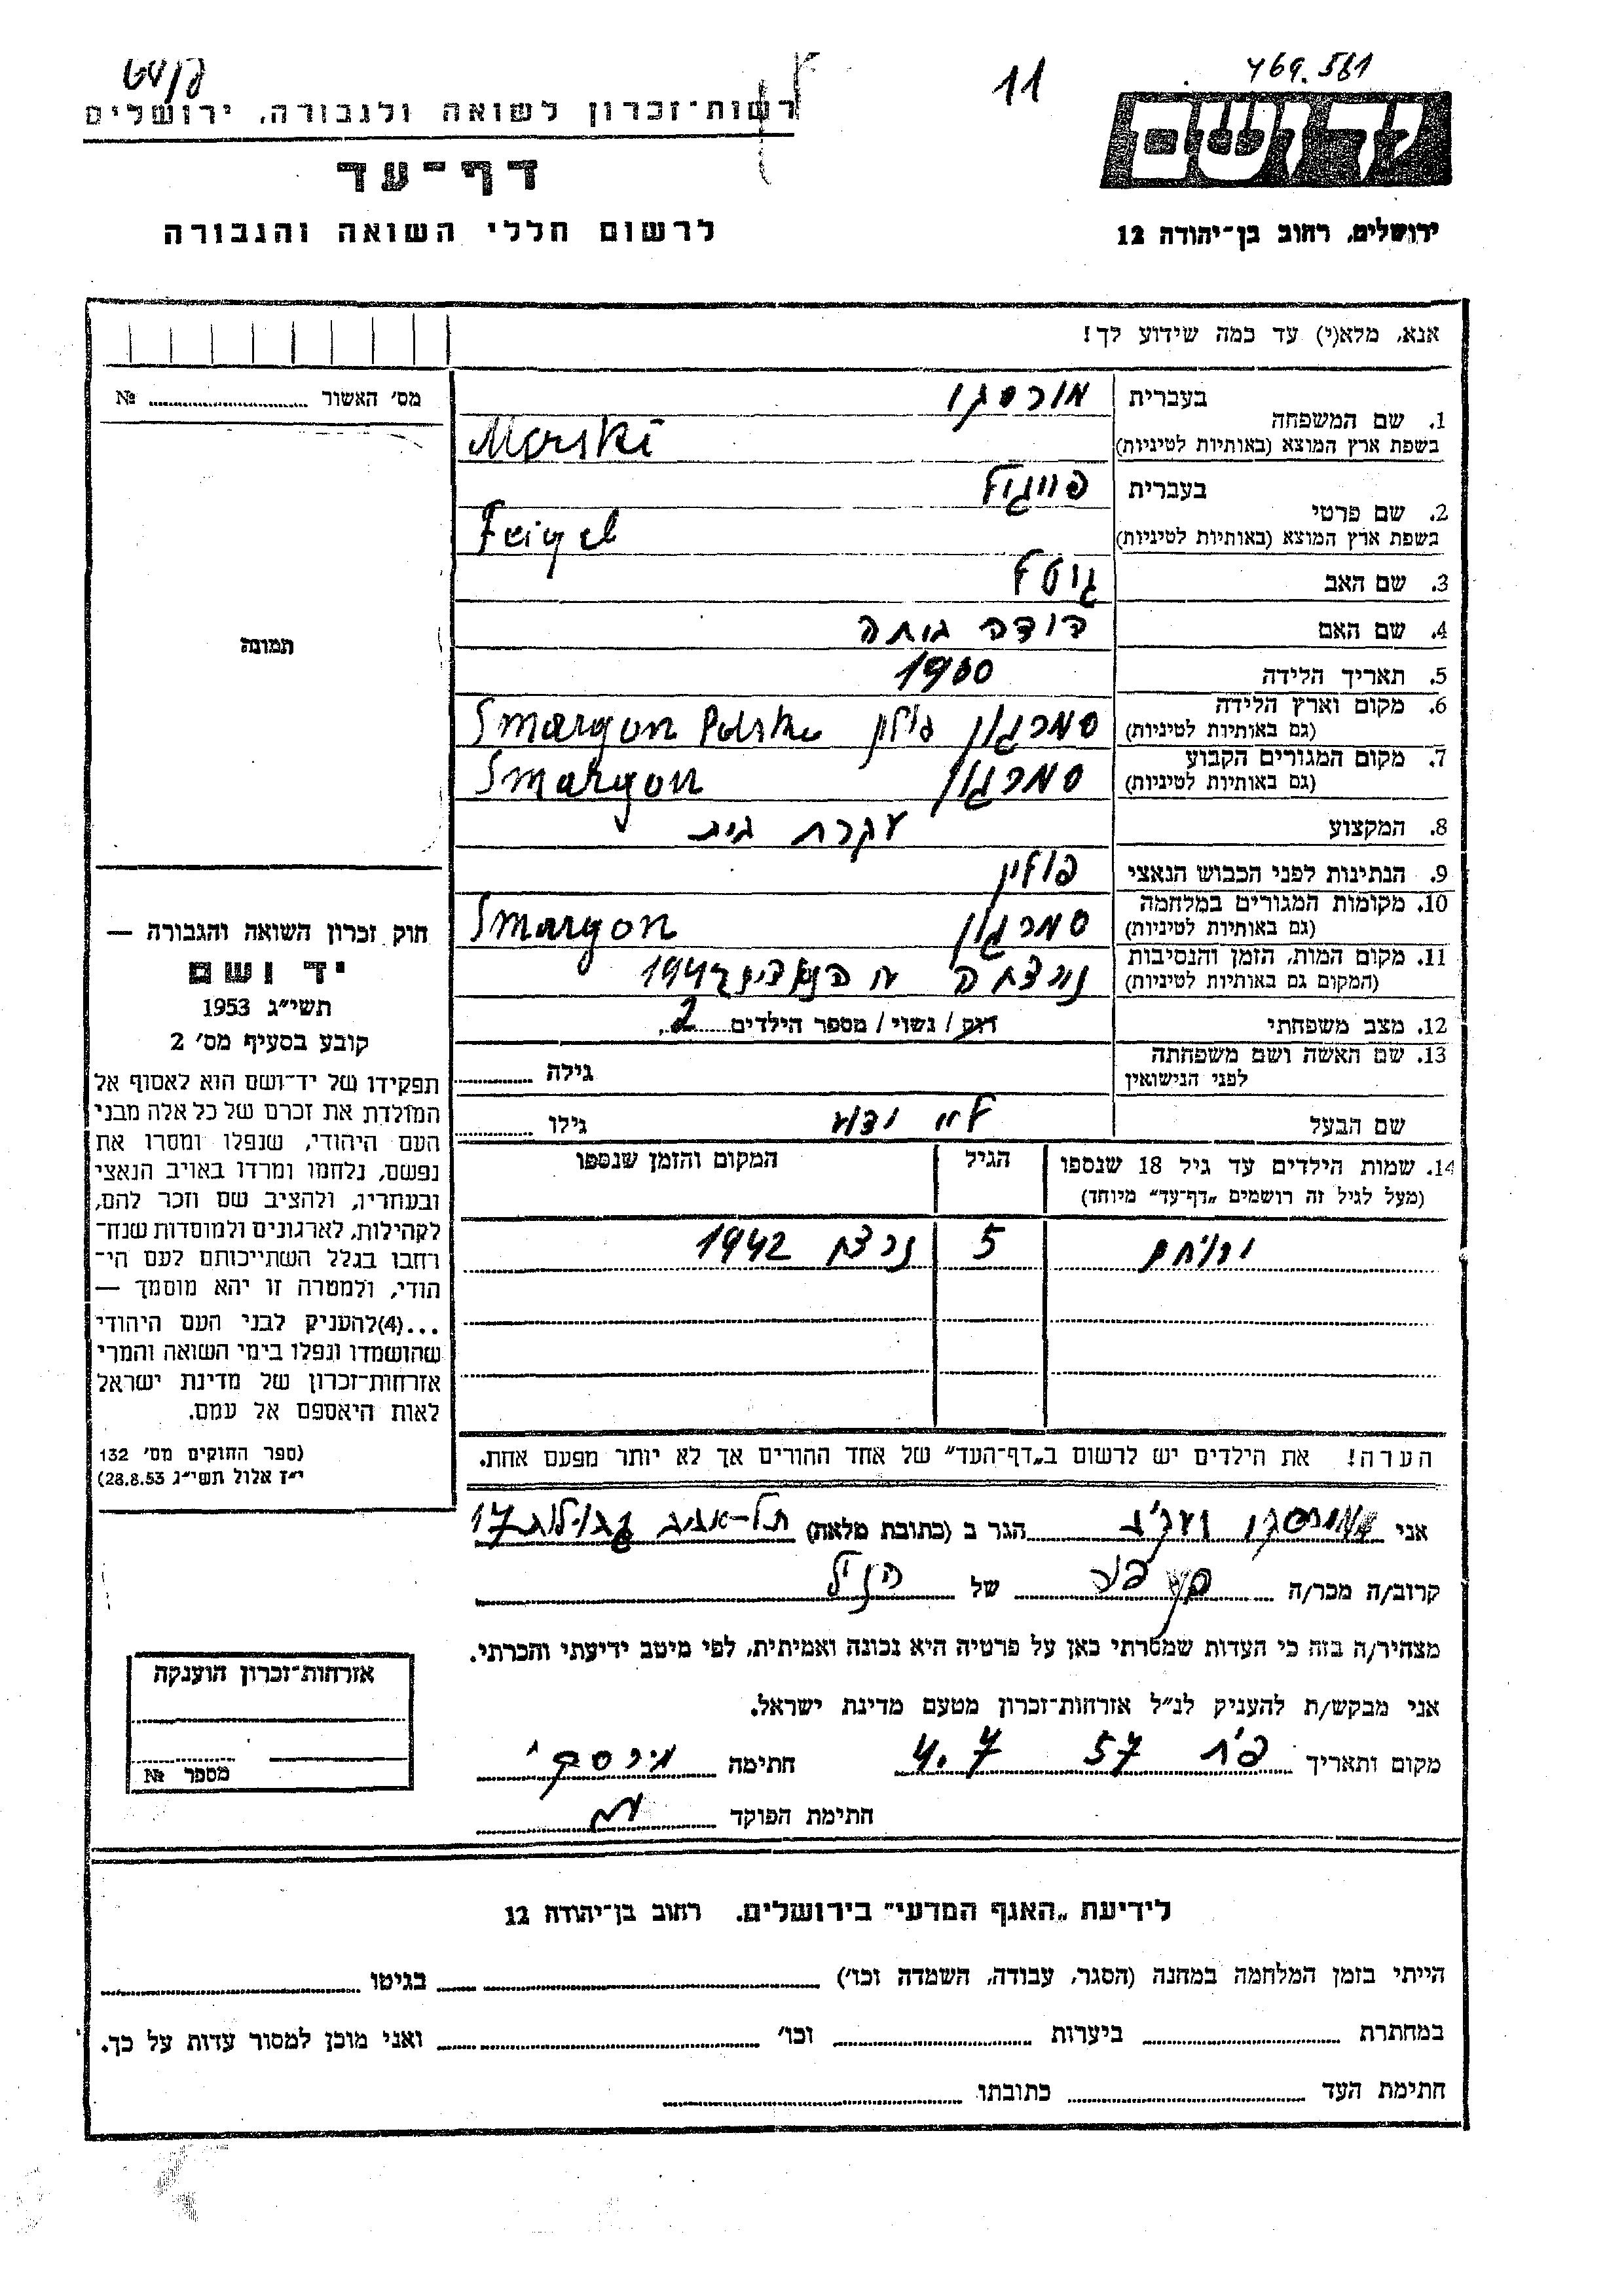 469.581
11
יד ושם
רשות־זכרון לשואה ולגבורה, ירושלים
דף־עד
לרשום חללי השואה והגבורה
ירושלים, רחוב בן־יהודה 12
אנא, מלא(י) עד כמה שידוע לך!
מס׳ האשור № 
תמונה
בעברית
1. שם המשפחה
בשפת ארץ המוצא (באותיות לטיניות) Morski
בעברית פייגל
2. שם פרטי
בשפת ארץ המוצא (באותיות לטיניות) Feigel
3. שם האב
4. שם האם
5. תאריך הלידה 1900
6. מקום וארץ הלידה
(גם באותיות לטיניות) סמרגון פולין Smargon Polska
7. מקום המגורים הקבוע
(גם באותיות לטיניות) סמרגון Smargon
8. המקצוע עקרת בית
9. הנתינות לפני הכבוש הנאצי פולין
10. מקומות המגורים במלחמה
(גם באותיות לטיניות) סמרגון Smargon
11. מקום המות, הזמן והנסיבות
(המקום גם באותיות לטיניות) נרצחה ע הנאצים 1942
12. מצב משפחתי רוק / נשוי / מספר הילדים 2
13. שם האשה ושם משפחתה
לפני הנישואין גילה
שם הבעל גילו
14. שמות הילדים עד גיל 18 שנספו הגיל המקום והזמן שנספו
(מעל לגיל זה רושמים „דף־עד״ מיוחד)
ירוחם 5 נרצח 1942
הערה! את הילדים יש לרשום ב„דף־העד״ של אחד ההורים אך לא יותר מפעם אחת.
חוק זכרון השואה והגבורה —
יד ושם
תשי״ג 1953
קובע בסעיף מס׳ 2
תפקידו של יד־ושם הוא לאסוף אל
המולדת את זכרם של כל אלה מבני
העם היהודי, שנפלו ומסרו את
נפשם, נלחמו ומרדו באויב הנאצי
ובעוזריו, ולהציב שם וזכר להם,
לקהילות, לארגונים ולמוסדות שנח־
רבו בגלל השתייכותם לעם הי־
הודי, ולמטרה זו יהא מוסמך —
...(4)להעניק לבני העם היהודי
שהושמדו ונפלו בימי השואה והמרי
אזרחות־זכרון של מדינת ישראל
לאות היאספם אל עמם.
(ספר החוקים מס׳ 132
י״ז אלול תשי״ג 28.8.53)
אני הגר ב (כתובת מלאה) תל-אביב 17
קרוב/ה מכר/ה של הנ״ל
מצהיר/ה בזה כי העדות שמסרתי כאן על פרטיה היא נכונה ואמיתית, לפי מיטב ידיעתי והכרתי.
אני מבקש/ת להעניק לנ״ל אזרחות־זכרון מטעם מדינת ישראל.
מקום ותאריך 4.7 57 חתימה
חתימת הפוקד
אזרחות־זכרון הוענקה
מספר №
לידיעת „האגף המדעי״ בירושלים. רחוב בן־יהודה 12
הייתי בזמן המלחמה במחנה (הסגר, עבודה, השמדה וכו׳) בגיטו
במחתרת ביערות וכו׳ ואני מוכן למסור עדות על כך.
חתימת העד כתובתו